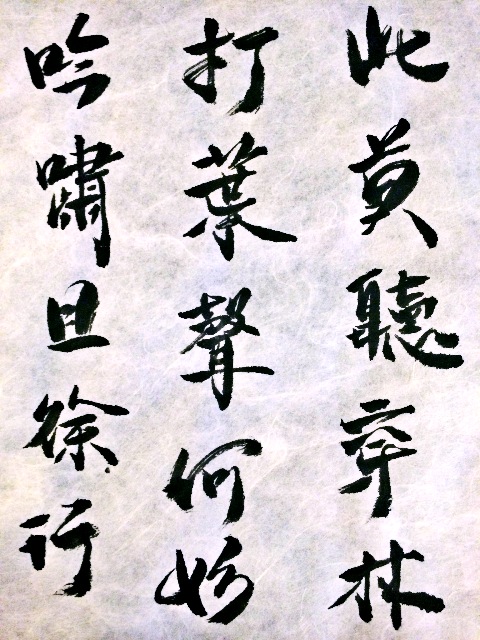 此莫聽穿林
打葉聲何妨
吟嘯且徐行